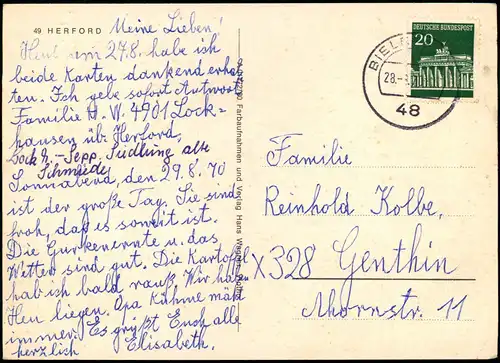 49 HERFORD
Meine Lieben!
Heut am 27.8. habe ich
beide Karten dankend erhal-
ten. Ich gebe sofort Antwort
Familie H. W. 4901 Lock-
hausen üb. Herford,
Sepp. Siedlung alte
Schmiede
Sonnabend, den 29.8.70
ist der große Tag. Sie sind
froh, das es soweit ist.
Die Gurkenernte u. das
Wetter sind gut. Die Kartoffel
hab ich bald rauß. Wir haben
Heu liegen. Opa Kühme mäht
immer. Es grüßt Euch alle
herzlich Elisabeth.
Farbaufnahmen und Verlag Hans
DEUTSCHE BUNDESPOST
20
BIELE
28.-
48
Familie
Reinhold Kolbe,
X 328 Genthin
Ahornstr. 11